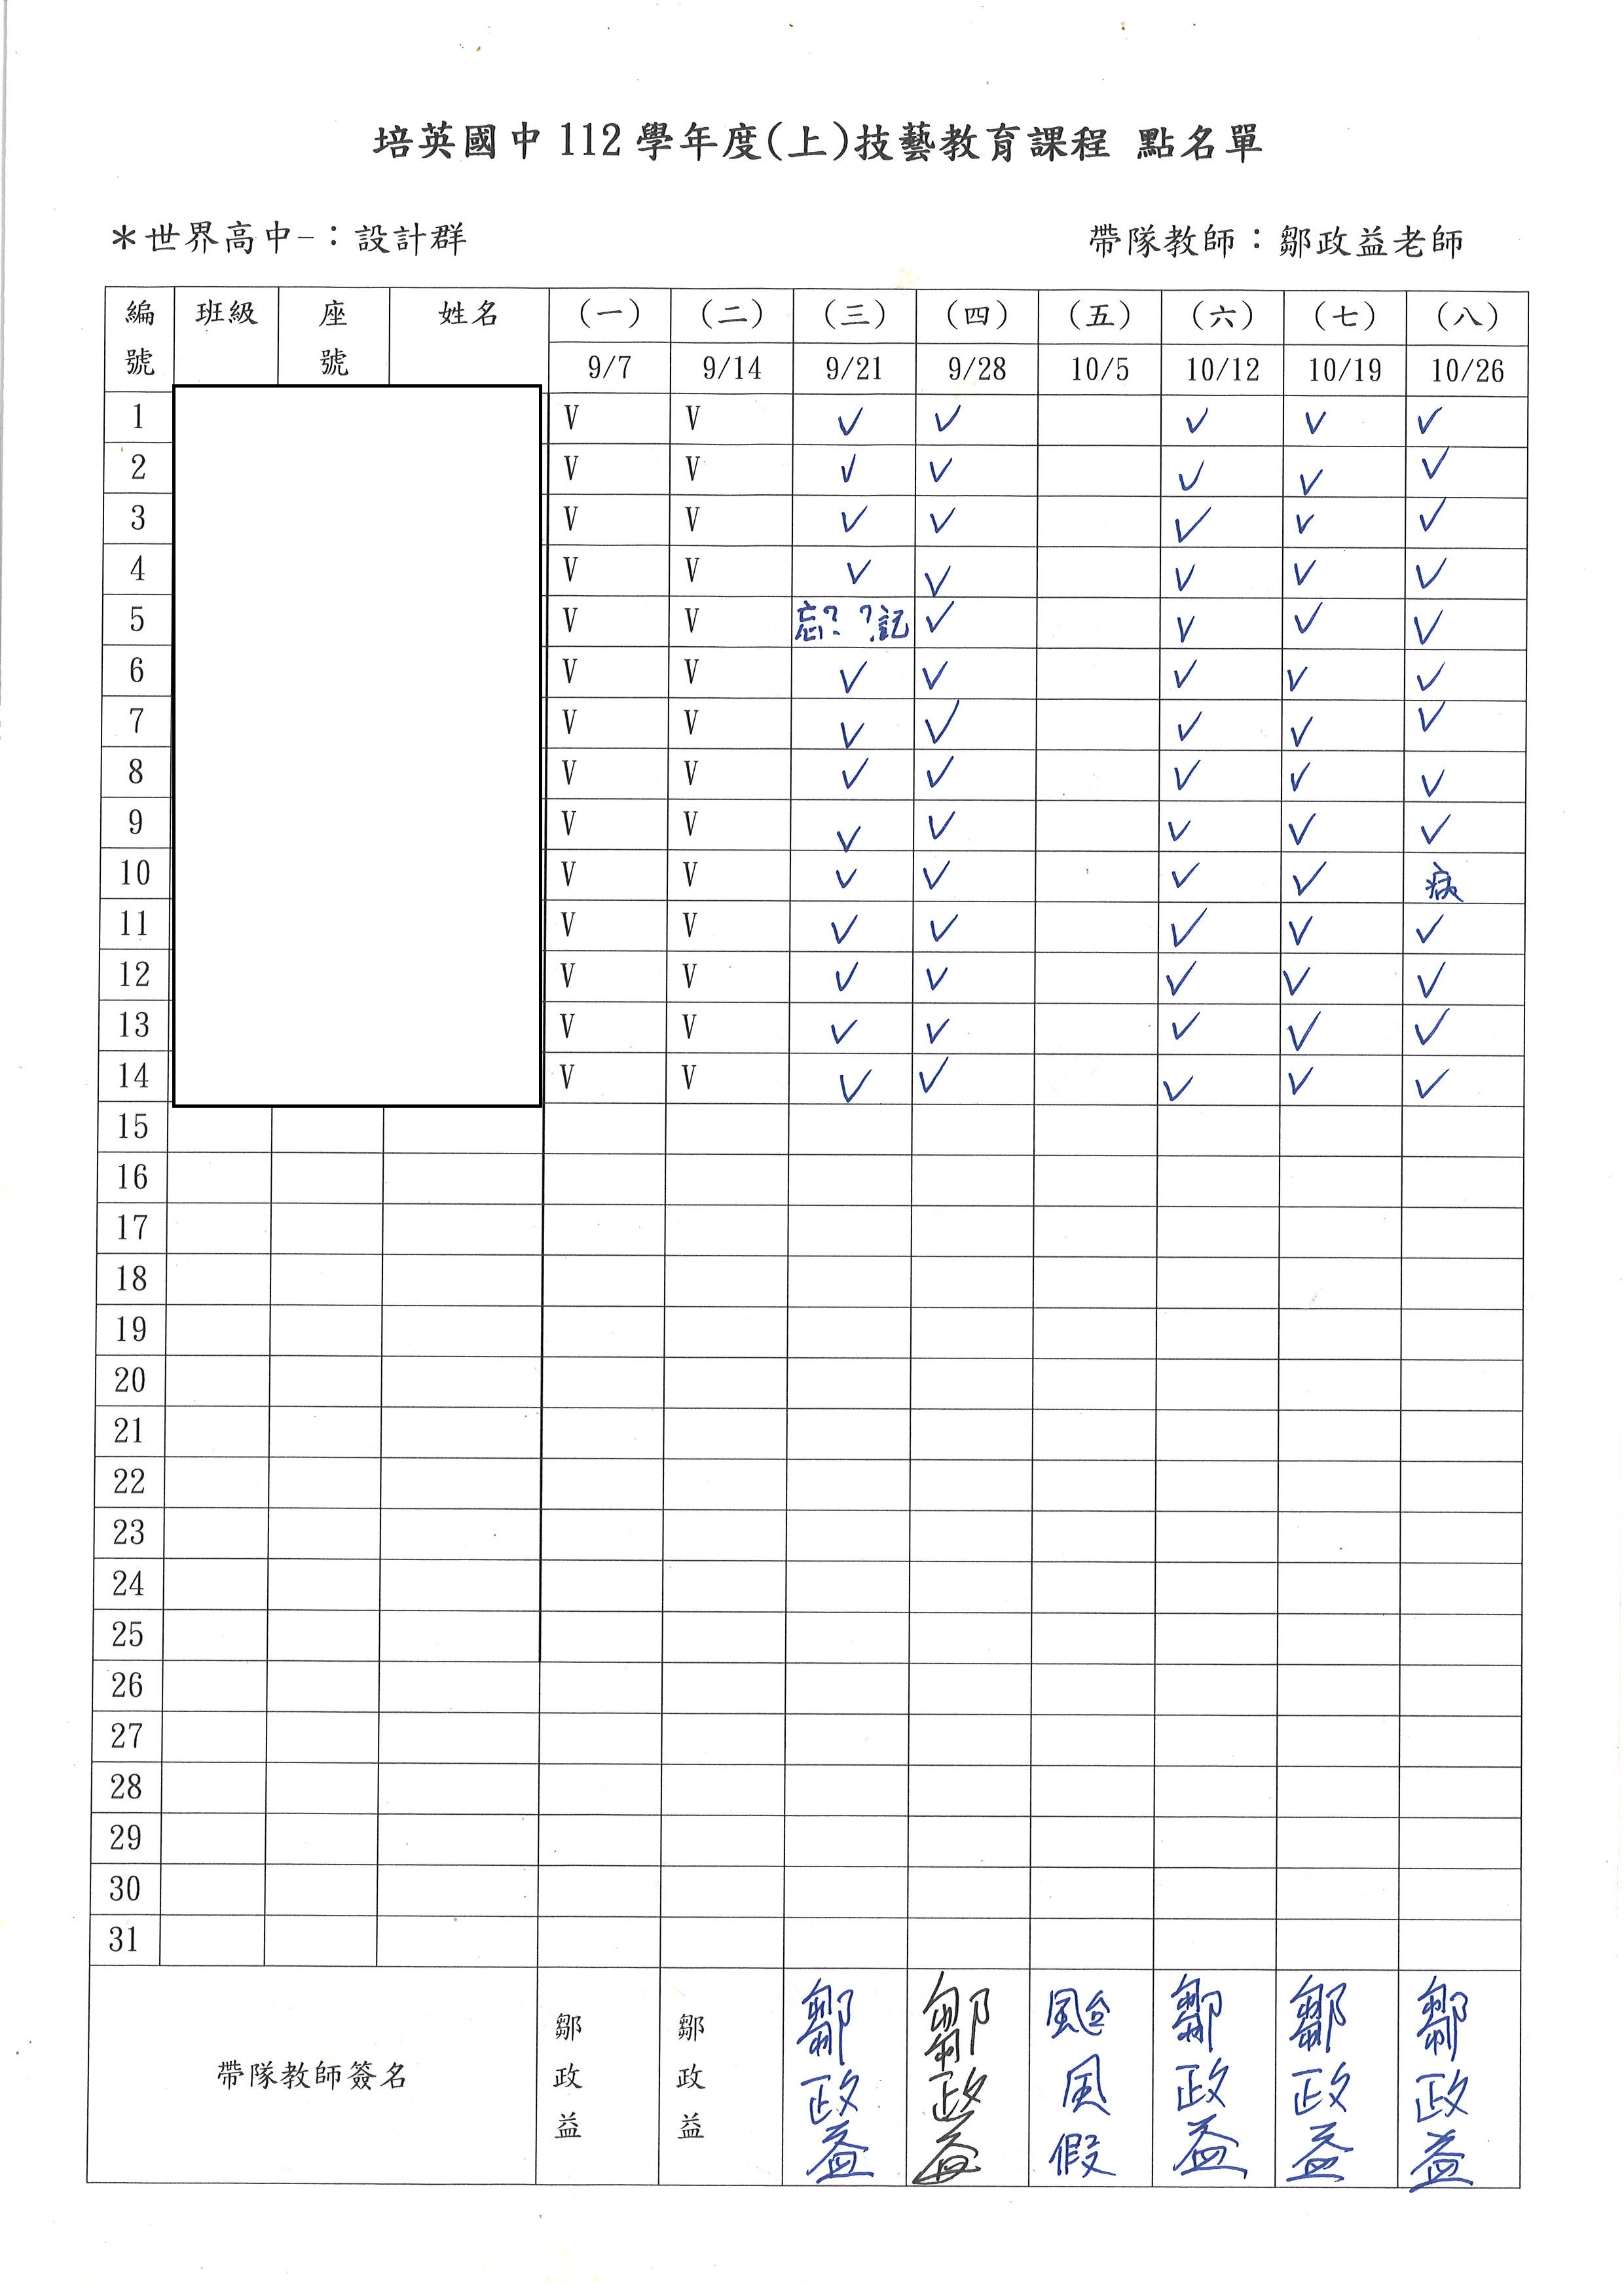 培英國中 112 學年度(上)技藝教育課程 點名單
＊世界高中-：設計群 帶隊教師：鄒政益老師
編號 班級 座號 姓名 (一) (二) (三) (四) (五) (六) (七) (八)
9/7 9/14 9/21 9/28 10/5 10/12 10/19 10/26
1 V V ✓ ✓ ✓ ✓ ✓
2 V V ✓ ✓ ✓ ✓ ✓
3 V V ✓ ✓ ✓ ✓ ✓
4 V V ✓ ✓ ✓ ✓ ✓
5 V V 忘?? ?記 ✓ ✓ ✓ ✓
6 V V ✓ ✓ ✓ ✓ ✓
7 V V ✓ ✓ ✓ ✓ ✓
8 V V ✓ ✓ ✓ ✓ ✓
9 V V ✓ ✓ ✓ ✓ ✓
10 V V ✓ ✓ ✓ ✓ 病
11 V V ✓ ✓ ✓ ✓ ✓
12 V V ✓ ✓ ✓ ✓ ✓
13 V V ✓ ✓ ✓ ✓ ✓
14 V V ✓ ✓ ✓ ✓ ✓
15
16
17
18
19
20
21
22
23
24
25
26
27
28
29
30
31
帶隊教師簽名 鄒政益 鄒政益 鄒政益 鄒政益 颱風假 鄒政益 鄒政益 鄒政益